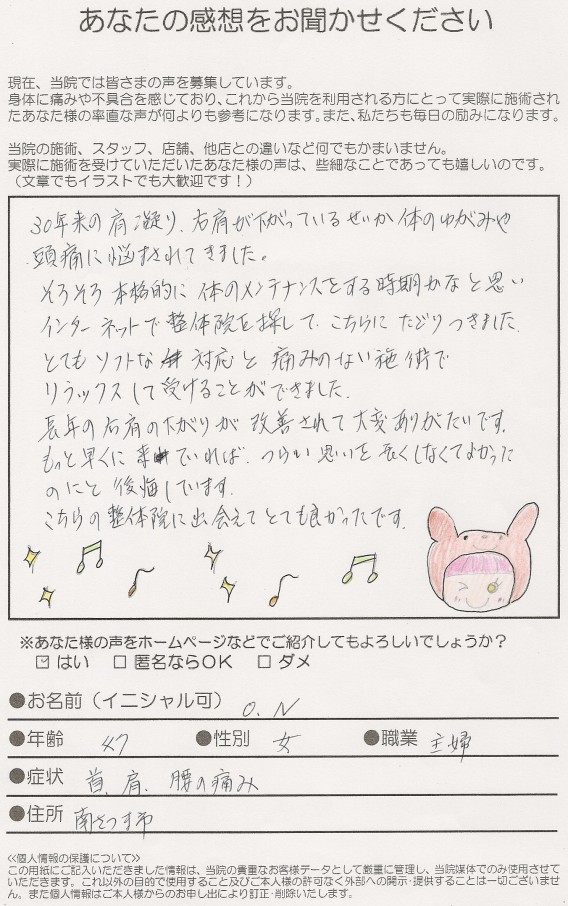 あなたの感想をお聞かせください
現在、当院では皆さまの声を募集しています。
身体に痛みや不具合を感じており、これから当院を利用される方にとって実際に施術され
たあなた様の率直な声が何よりも参考になります。また、私たちも毎日の励みになります。
当院の施術、スタッフ、店舗、他店との違いなど何でもかまいません。
実際に施術を受けていただいたあなた様の声は、些細なことであっても嬉しいのです。
（文章でもイラストでも大歓迎です！）
30年来の肩凝り、右肩が下がっているせいか体のゆがみや
頭痛に悩まされてきました。
そろそろ本格的に体のメンテナンスをする時期かなと思い
インターネットで整体院を探して、こちらにたどりつきました。
とてもソフトな対応と痛みのない施術で
リラックスして受けることができました。
長年の右肩の下がりが改善されて大変ありがたいです。
もっと早くに来ていれば、つらい思いを長くしなくてよかった
のにと後悔しています。
こちらの整体院に出会えてとても良かったです。
※あなた様の声をホームページなどでご紹介してもよろしいでしょうか？
☑ はい □ 匿名ならOK □ ダメ
●お名前（イニシャル可） O.N
●年齢 47 ●性別 女 ●職業 主婦
●症状 首、肩、腰の痛み
●住所 南さつま市
≪個人情報の保護について≫
この用紙にご記入いただきました情報は、当院の貴重なお客様データとして厳重に管理し、当院媒体でのみ使用させて
いただきます。これ以外の目的で使用すること及びご本人様の許可なく外部への開示・提供することは一切ございませ
ん。また個人情報はご本人様からのお申し出により訂正・削除いたします。